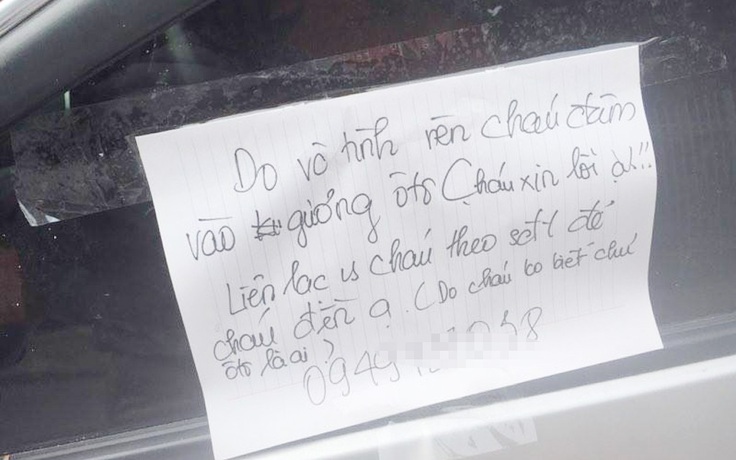 Do vô tình nên cháu đâm
vào gương ôtô Cháu xin lỗi ạ!!
Liên lạc vs cháu theo sđt để
cháu đền ạ. (Do cháu ko biết chủ
ôtô là ai)
0949 058